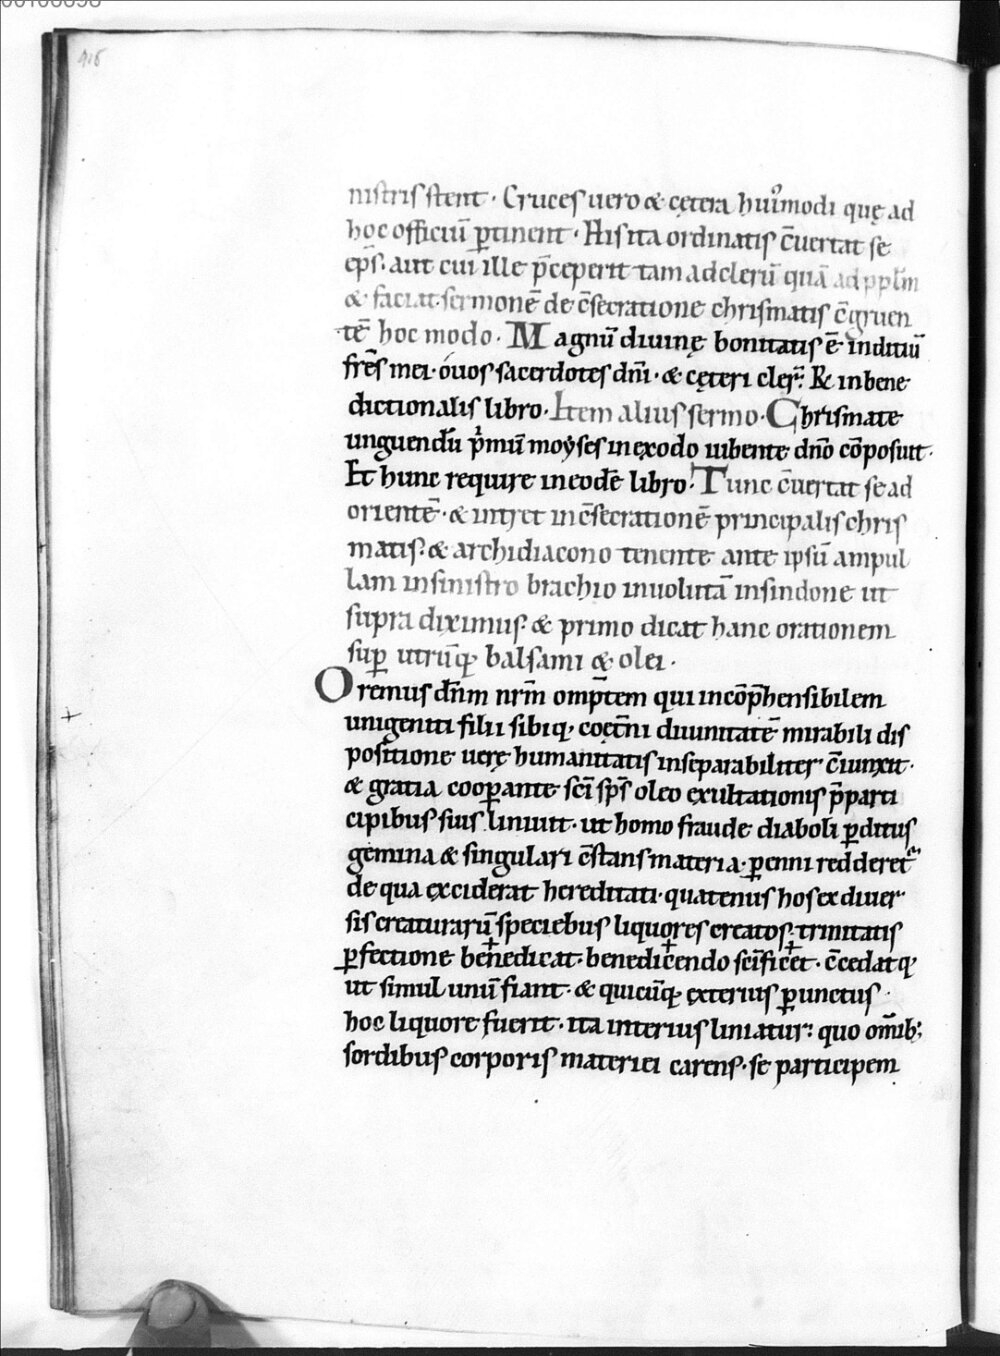 nistris stent · Cruces uero & cętera hui᷒modi quę ad
hoc officiū ꝑtinent · His ita ordinatis c̄uertat se
ep̄s · aut cui ille p̄ceperit tam ad clerū quā ad pp̄lm
& faciat sermonē de c̄secratione chrismatis c̄gruen
tē hoc modo · Magnū diuinę bonitatis ē inditiū
fr̄es mei · o uos sacerdotes dn̄i · & cęteri cler̄ : R̄ in bene
dictionalis libro · Item alius sermo · Chrismate
unguendū p̄mū moyses in exodo iubente dn̄o cōposuit ·
Et hunc require in eodē libro · Tunc c̄uertat se ad
orientē · & intret in c̄secrationē principalis chris
matis · & archidiacono tenente ante ipsū ampul
lam in sinistro brachio inuolutā in sindone ut
supra diximus · & primo dicat hanc orationem
suꝑ utrūq; balsami & olei ·
Oremus dn̄m nr̄m omp̄tem qui incōp̄hensibilem
unigeniti filii sibiq; coęt̄ni diuinitatē mirabili dis
positione uerę humanitatis inseparabiliter c̄iunxit ·
& gratia cooꝑante sc̄i sp̄s oleo exultationis p̄ parti
cipibus suis liniuit · ut homo fraude diaboli ꝑditus
gemina & singulari c̄stans materia · ꝑenni redderet᷑
de qua exciderat hereditati · quatenus hos ex diuer
sis creaturarū speciebus liquores creatos · trinitatis
ꝑfectione bene+dicat · benedic+endo sc̄ific+et · c̄cedatq;
ut simul unū fiant · & quicūq; exterius ꝑunctus ·
hoc liquore fuerit · ita interius liniatur : quo om̄ib;
sordibus corporis materiei carens · se participem